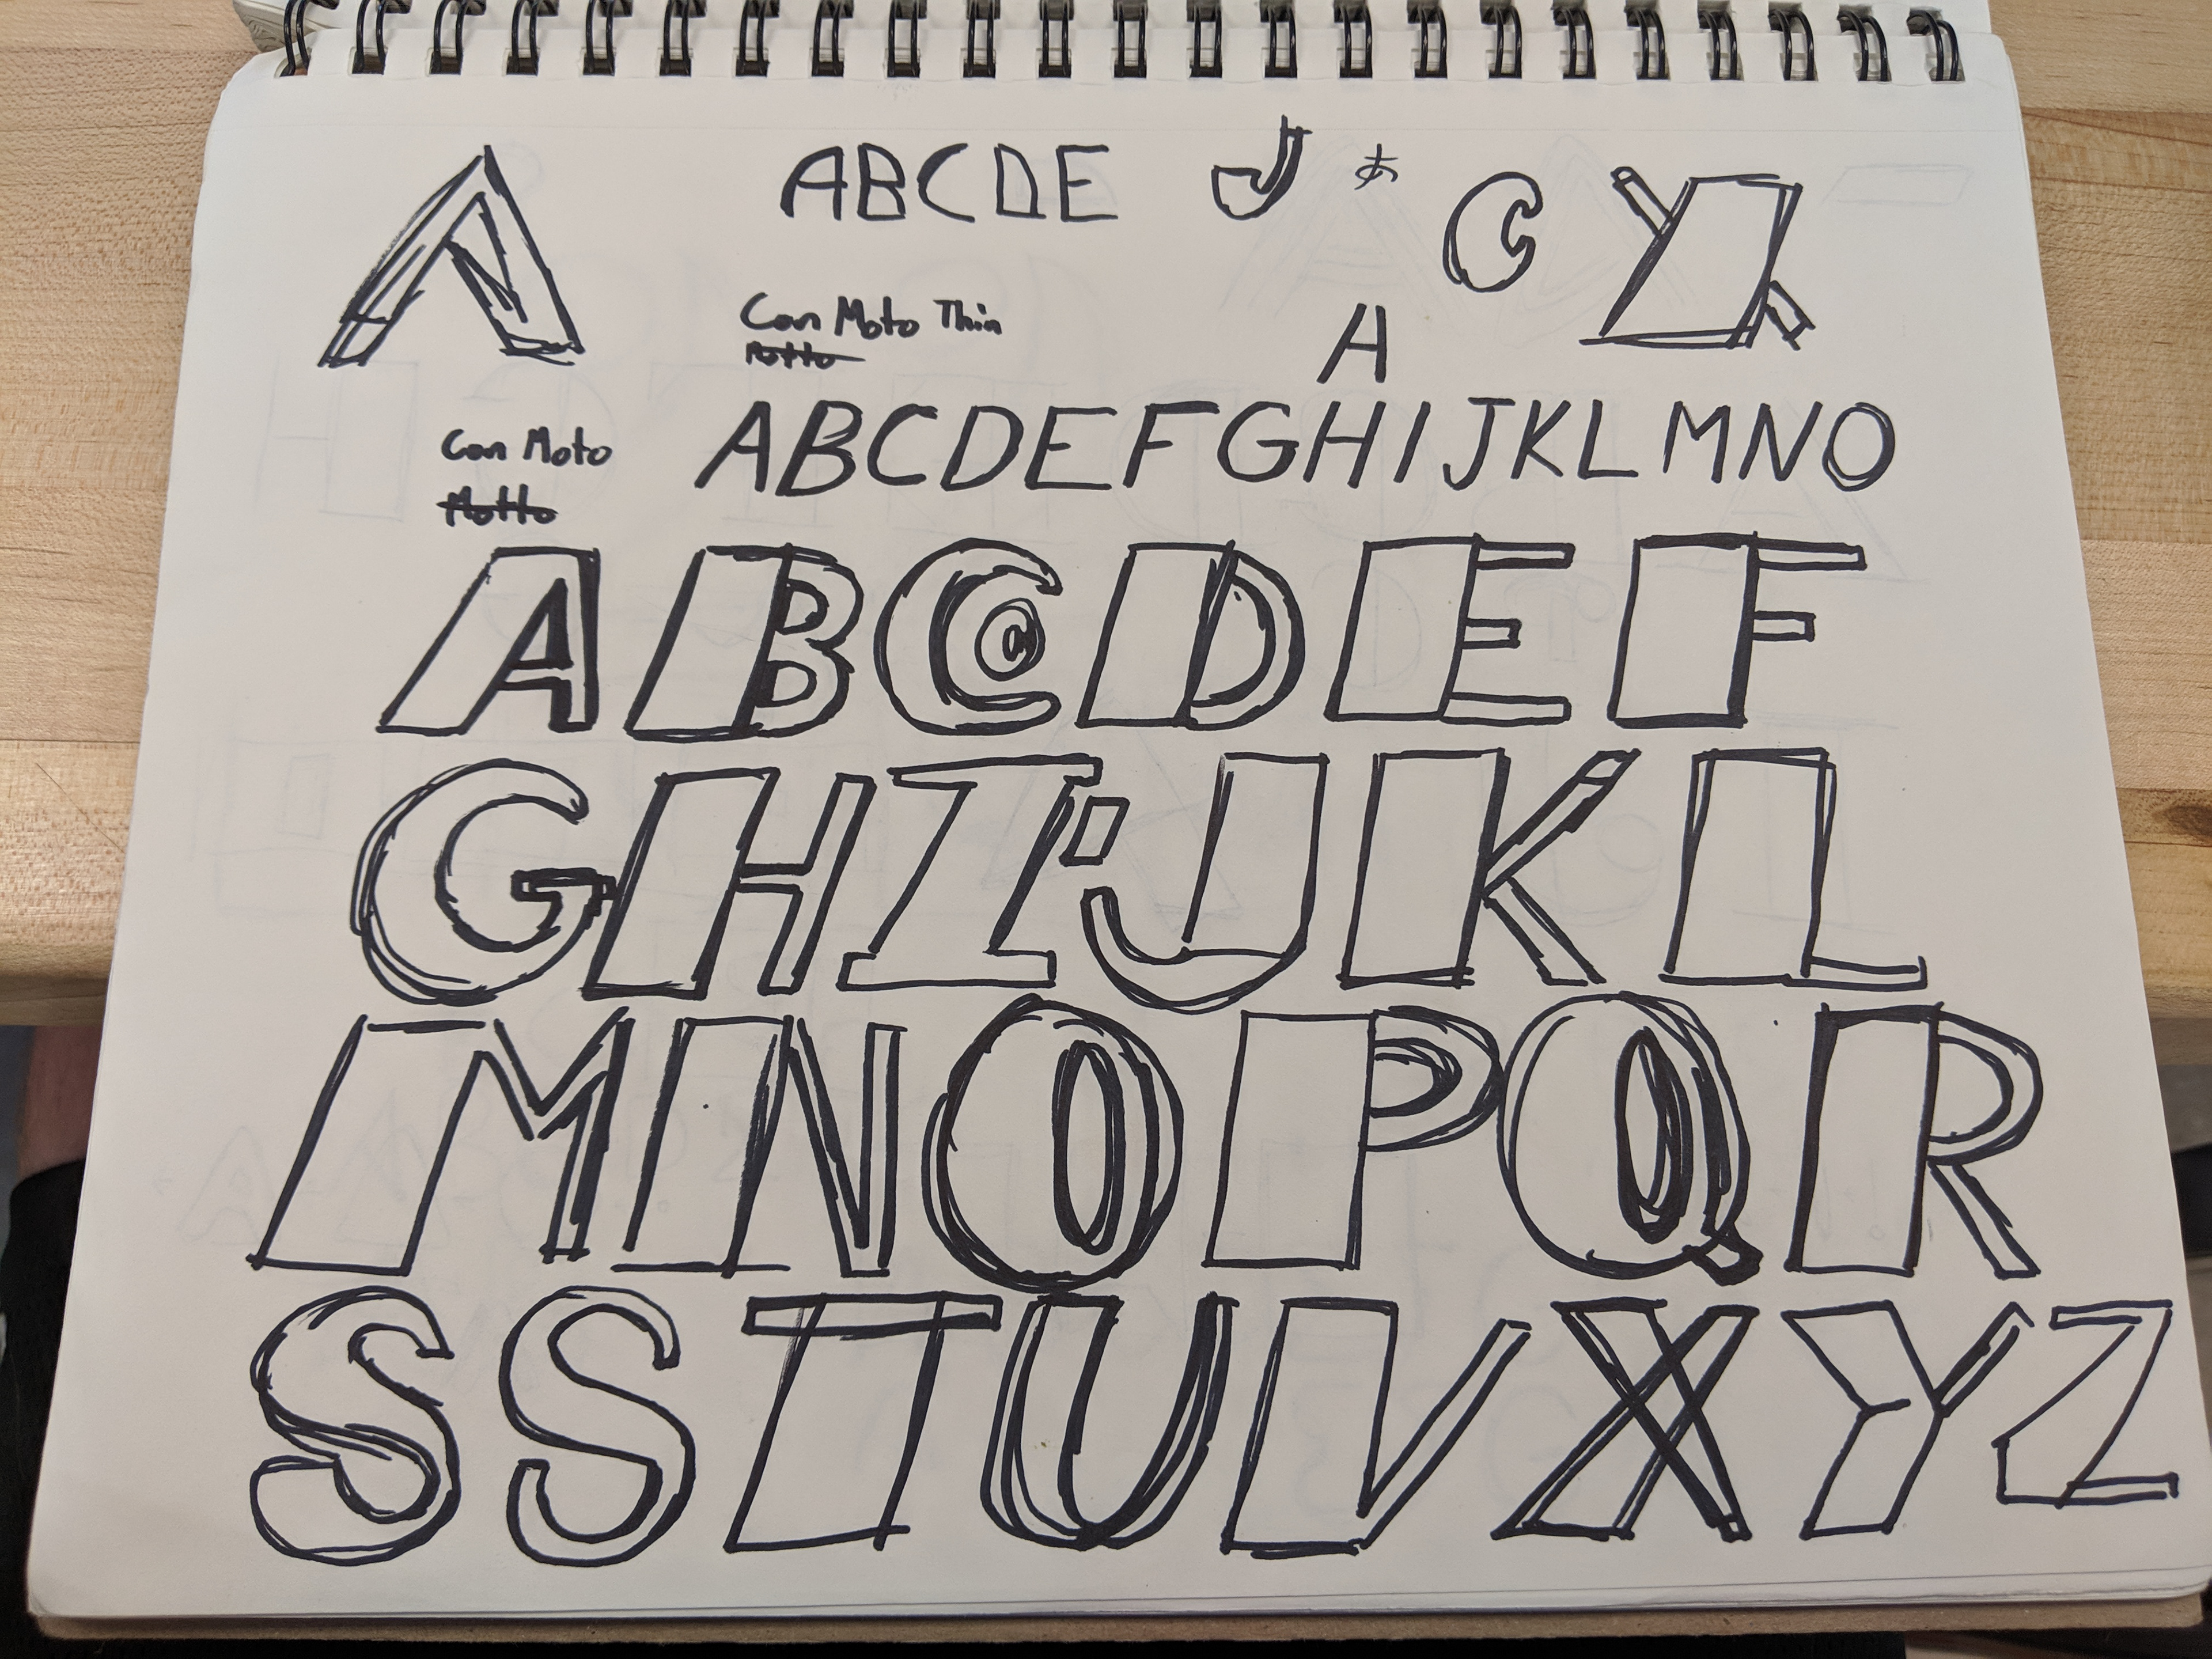 A ABCDE J あ C
Con Moto Thin
Motto
A
Con Moto ABCDEFGHIJKLMNO
Motto
ABCDEF
GHIJKL
MNOPQR
SSTUVXYZ